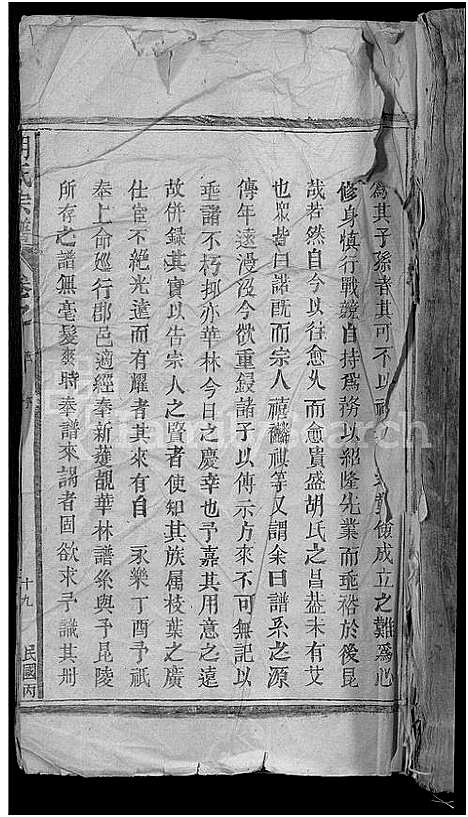 為其子孫者其可不以祖
成立之難為心
修身慎行戰兢自持為務以紹隆先業而垂裕於後昆
哉若然自今以往愈久而愈貴盛胡氏之昌葢未有艾
也眾皆曰諾既而宗人禧麟祺等又謂余曰譜系之源
傳年遠漫沒今欲重鋟諸子以傳示方來不可無記以
垂諸不朽抑亦華林今日之慶幸也予嘉其用意之遠
故併録其實以告宗人之賢者使知其族属枝葉之廣
仕宦不絶光遠而有耀者其來有自 永樂丁酉予祇
奉上命廵行郡邑適經奉新獲覩華林譜系與予昆陵
所存之譜無毫髮爽時奉譜來謁者固欲求予識其册
胡氏宗譜 卷之
十九
民國丙